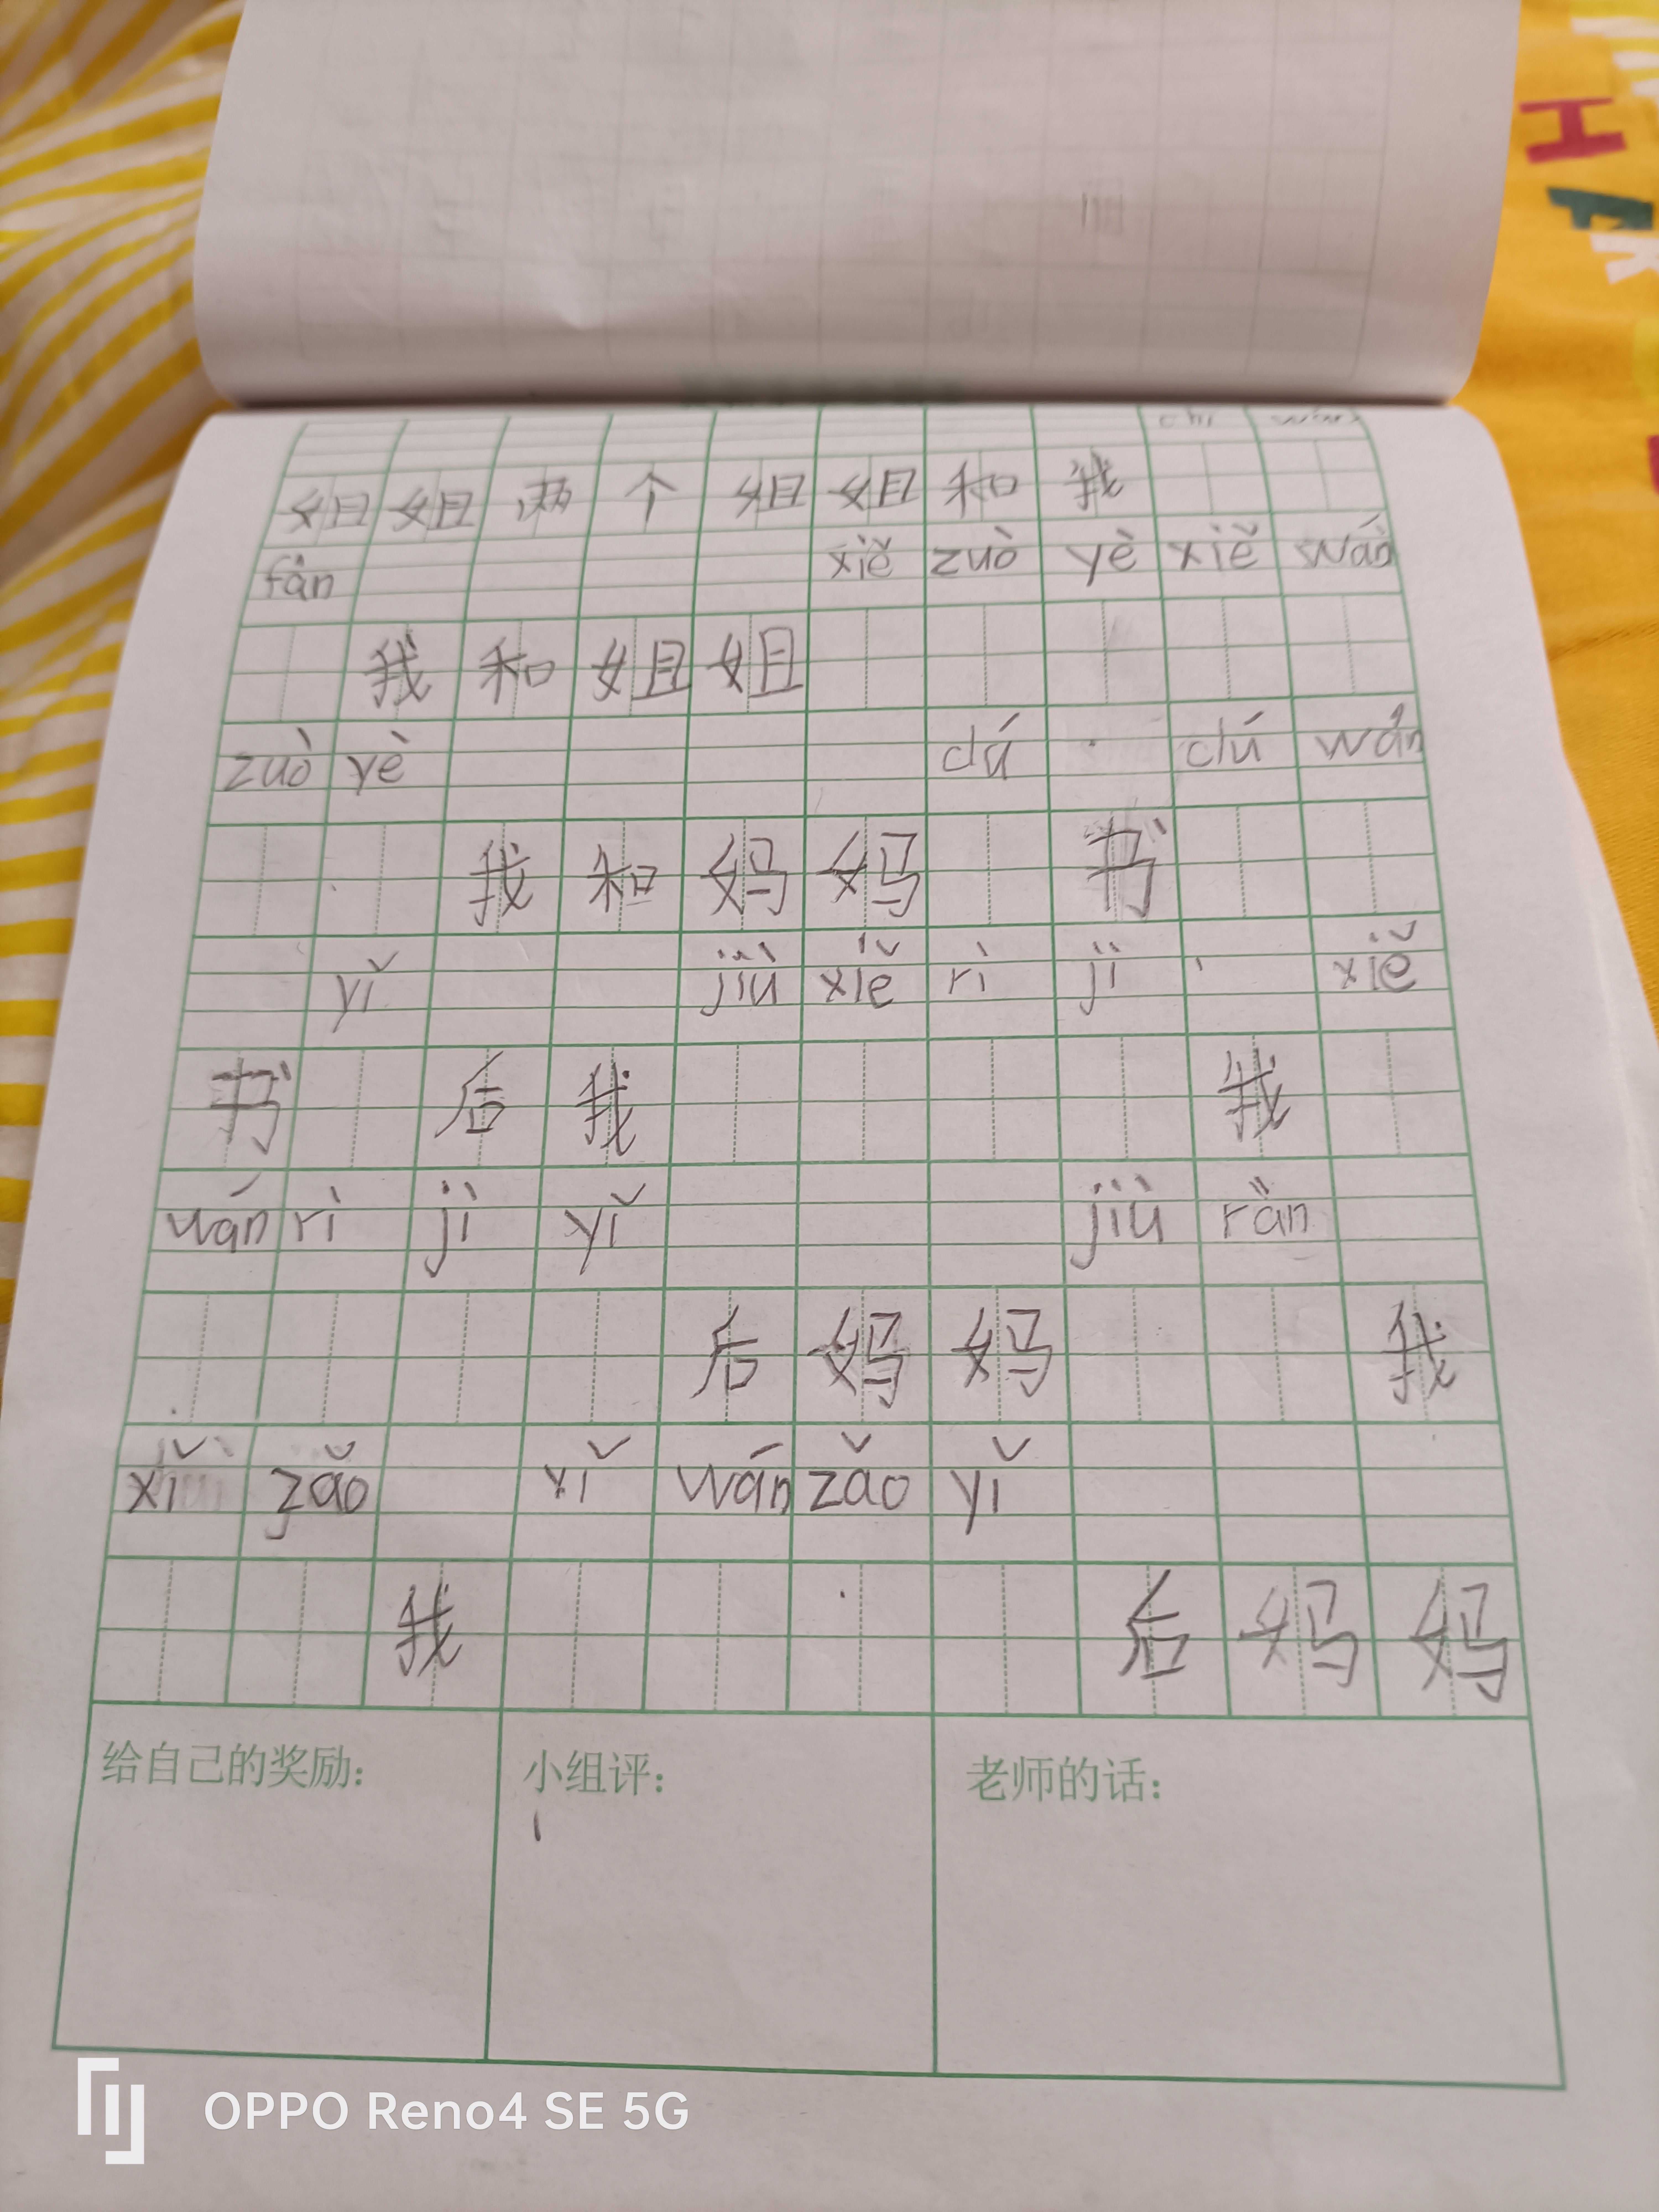 chī wán
姐姐两个姐姐和我
fàn xiě zuò yè xiě wán
我和姐姐
zuò yè dú dú wán
我和妈妈 书
yǐ jiù xiě rì jì xiě
书 后我 我
wán rì jì yǐ jiù ràn
后妈妈 我
xǐ zǎo xǐ wán zǎo yǐ
我 后妈妈
给自己的奖励：
小组评：
老师的话：
OPPO Reno4 SE 5G